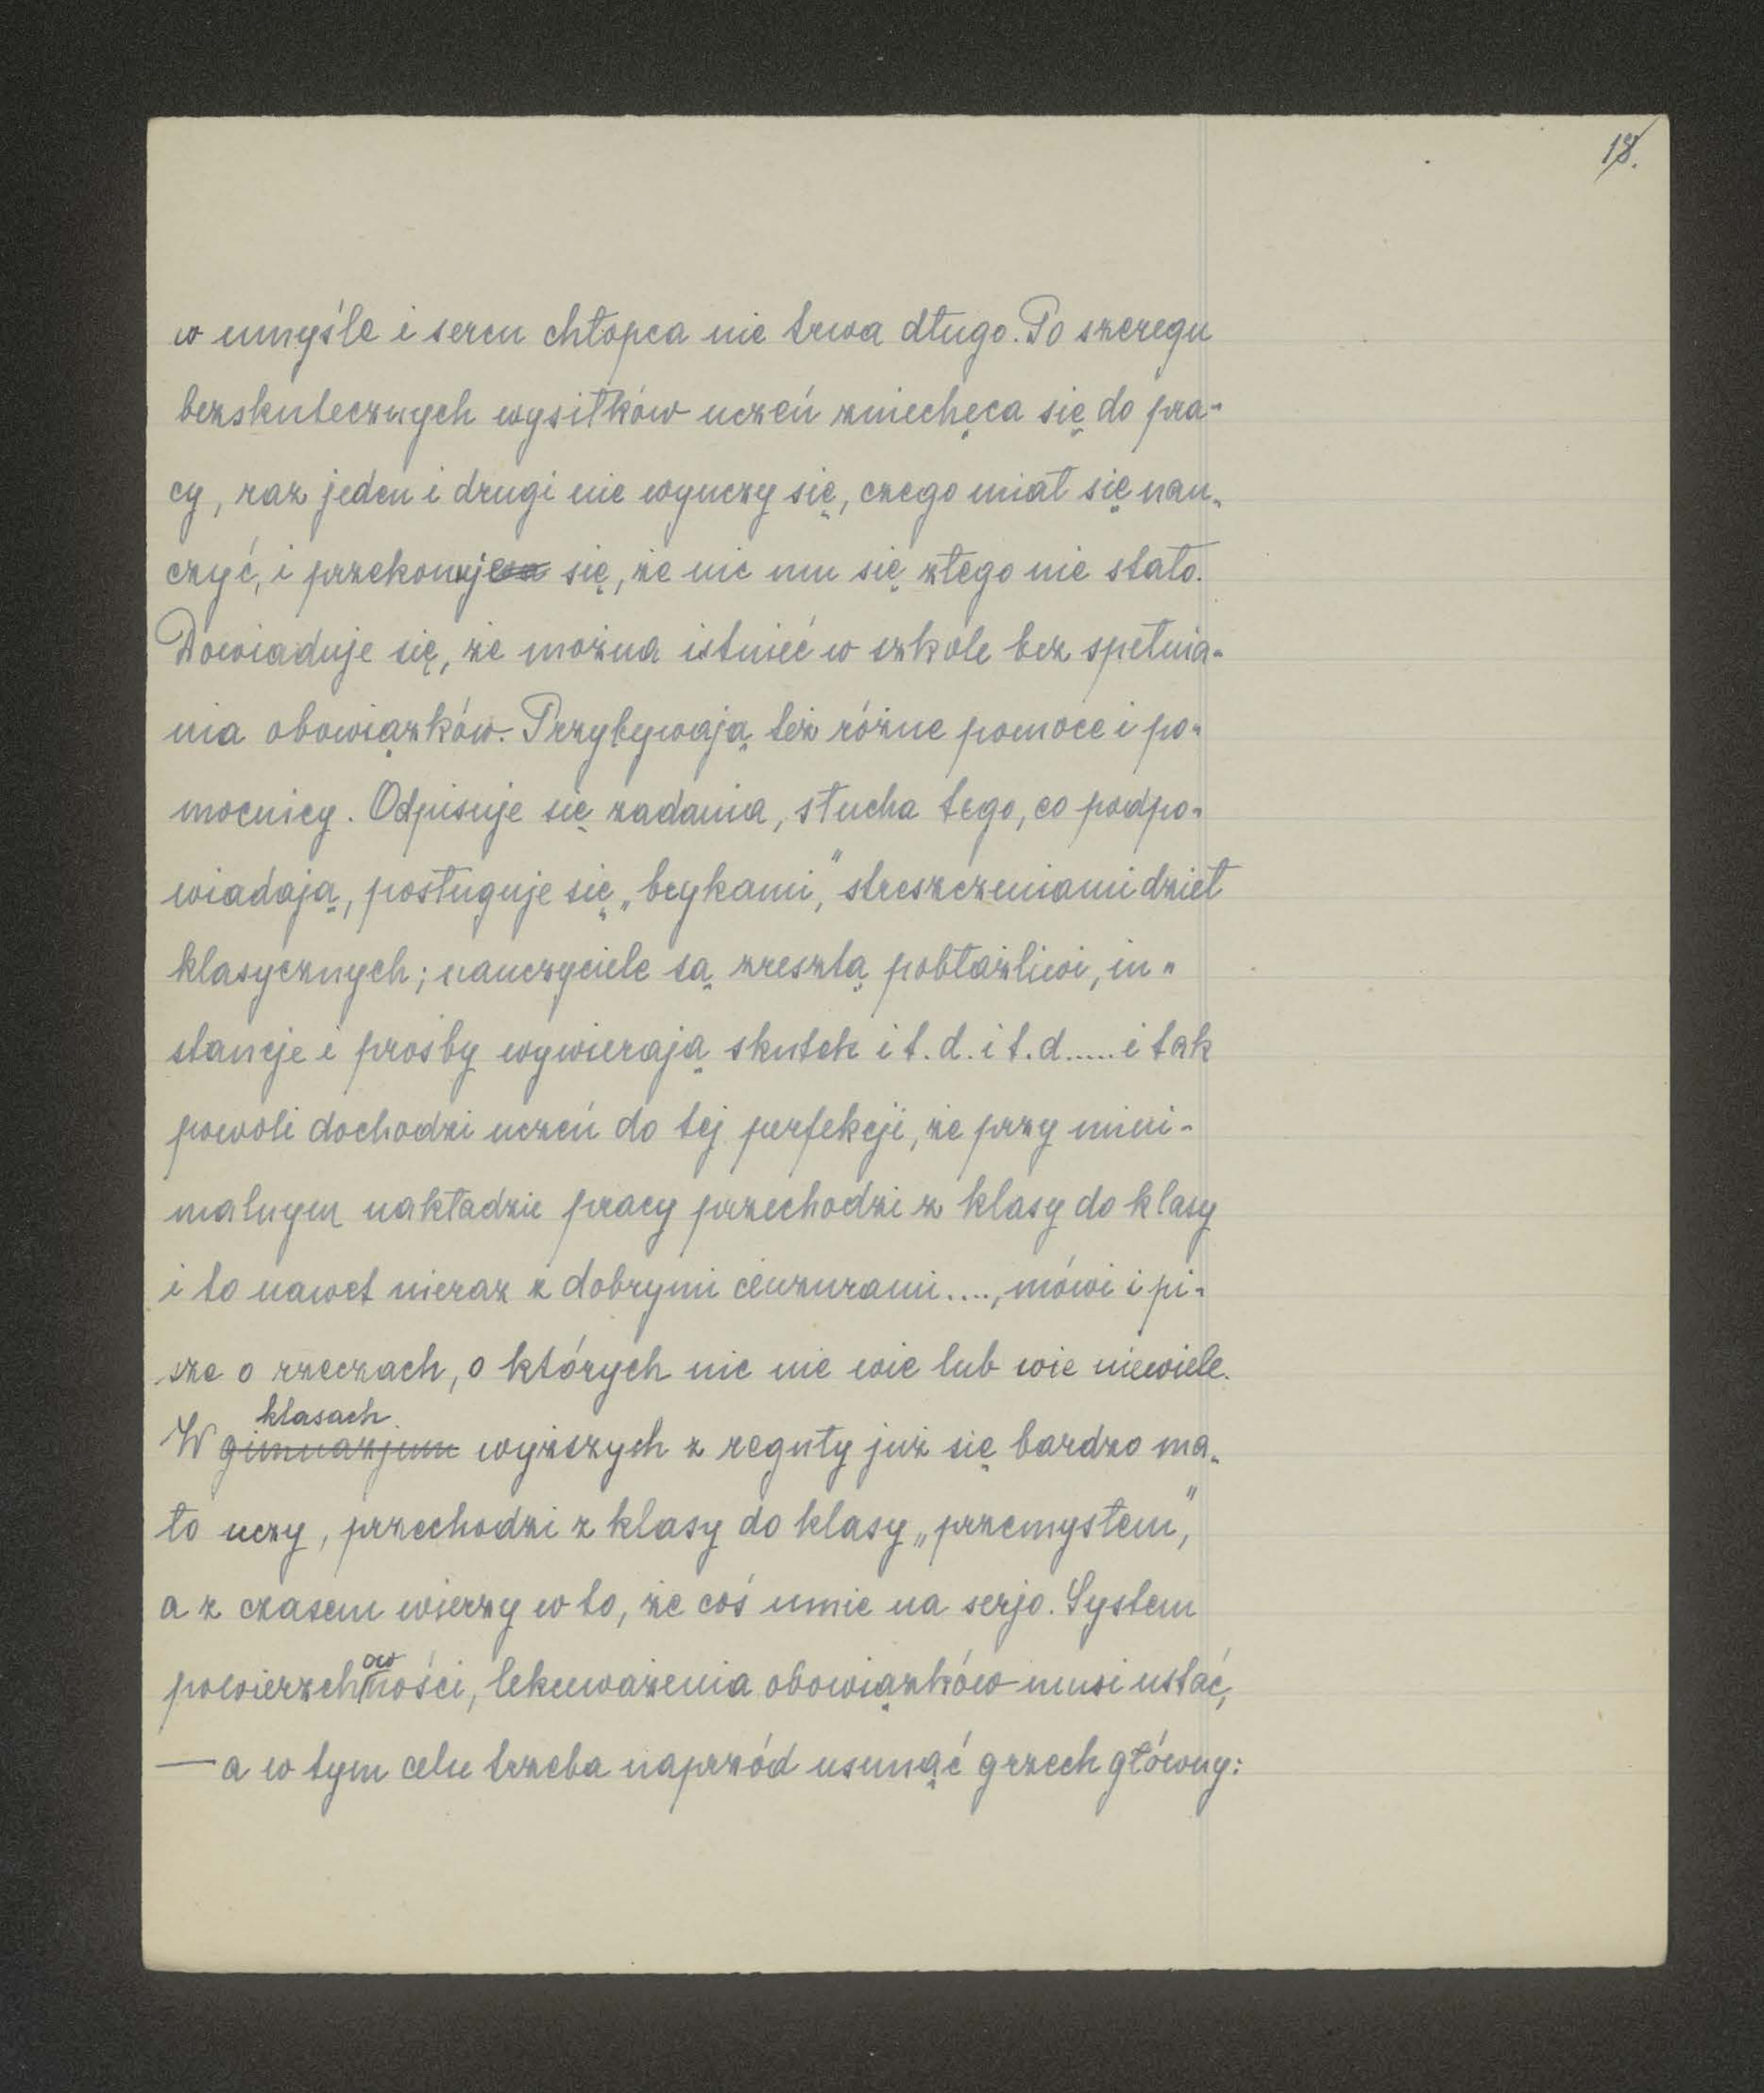 18.
w umyśle i sercu chłopca nie trwa długo. Po szeregu
bezskutecznych wysiłków uczeń zniechęca się do pra-
cy, raz jeden i drugi nie wyuczy się, czego miał się nau-
czyć, i przekonuje się, że nic mu się złego nie stało.
Dowiaduje się, że można istnieć w szkole bez spełnia-
nia obowiązków. Przybywają też różne pomoce i po-
mocnicy. Odpisuje się zadania, słucha tego, co podpo-
wiadają, posługuje się „brykami,” streszczeniami dzieł
klasycznych; nauczyciele są zresztą pobłażliwi, in-
stancje i prośby wywierają skutek i t. d. i t. d..... i tak
powoli dochodzi uczeń do tej perfekcji, że przy mini-
malnym nakładzie pracy przechodzi z klasy do klasy
i to nawet nieraz z dobrymi cenzurami...., mówi i pi-
sze o rzeczach, o których nic nie wie lub wie niewiele.
klasach
W gimnazjum wyższych z reguły już się bardzo ma-
ło uczy, przechodzi z klasy do klasy „przemysłem,”
a z czasem wierzy w to, że coś umie na serjo. System
powierzchowności, lekceważenia obowiązków musi ustać,
— a w tym celu trzeba naprzód usunąć grzech główny: